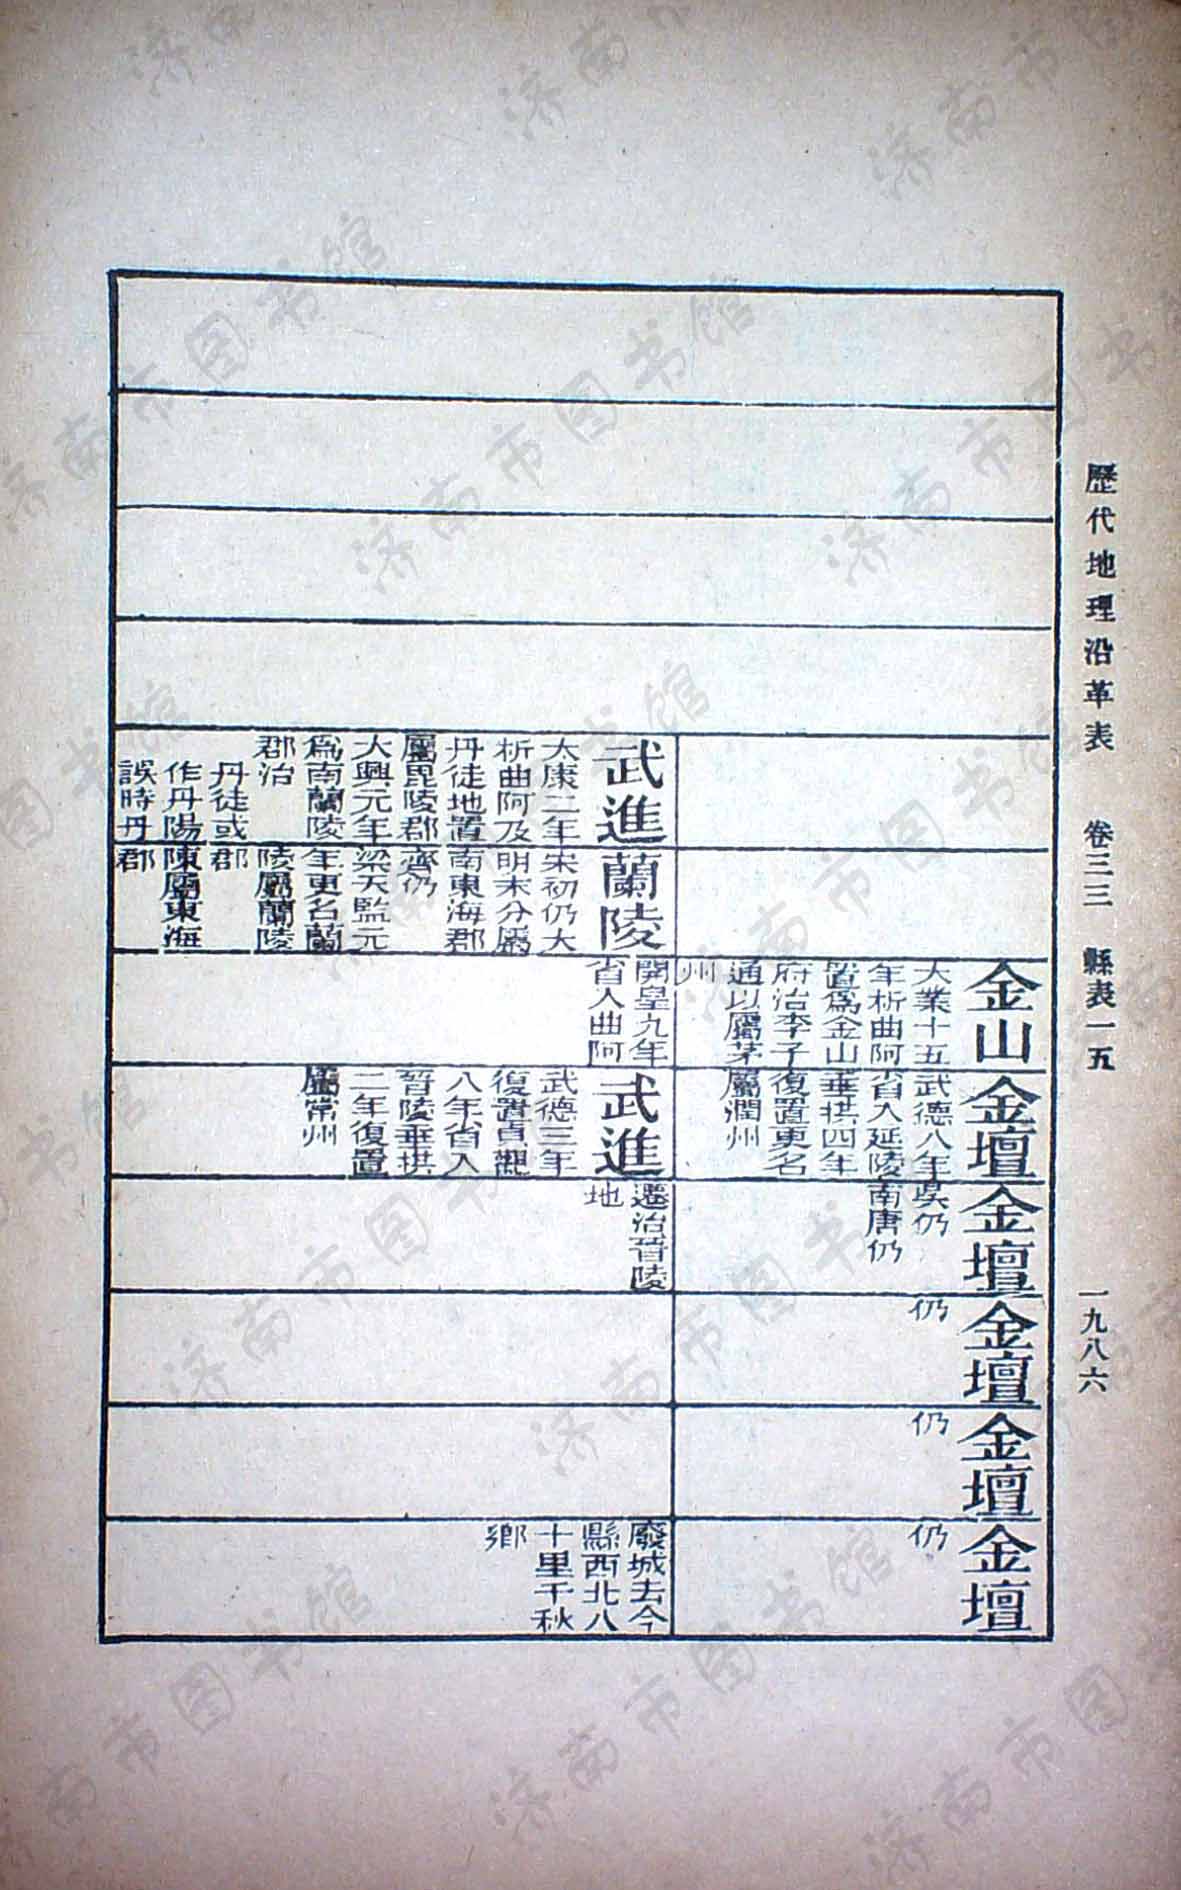 歷代地理沿革表　卷三三　縣表一五　一九八六
金山
大業十五
年析曲阿
置爲金山
府治李子
通以屬茅
州
金壇
武德八年
省入延陵
垂拱四年
復置更名
屬潤州
金壇
吳仍
南唐仍
金壇
仍
金壇
仍
金壇
仍
武進
太康二年
析曲阿及
丹徒地置
屬毘陵郡
大興元年
爲南蘭陵
郡治
丹徒或
作丹陽
誤時丹
蘭陵
宋初仍大
明末分屬
南東海郡
齊仍
梁天監元
年更名蘭
陵屬蘭陵
郡
陳屬東海
郡
開皇九年
省入曲阿
武進
武德三年
復置貞觀
八年省入
晉陵垂拱
二年復置
屬常州
遷治晉陵
地
廢城去今
縣西北八
十里千秋
鄉
济南市图书馆